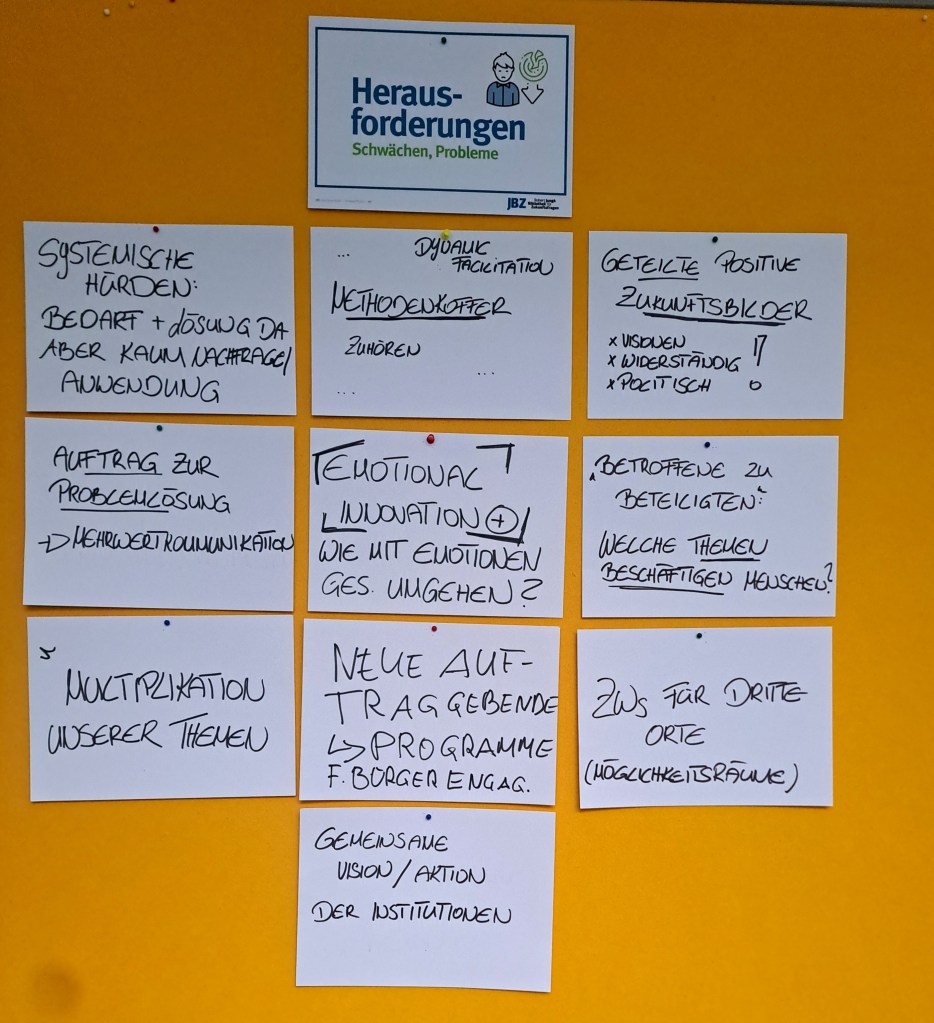 Heraus-
forderungen
Schwächen, Probleme
JBZ
SYSTEMISCHE
HÜRDEN:
BEDARF + LÖSUNG DA
ABER KAUM NACHFRAGE/
ANWENDUNG
... DYNAMIC
FACILITATION
METHODENKOFFER
ZUHÖREN
...
...
GETEILTE POSITIVE
ZUKUNFTSBILDER
x VISIONEN
x WIDERSTÄNDIG
x POLITISCH
AUFTRAG ZUR
PROBLEMLÖSUNG
→ MEHRWERTKOMMUNIKATION
EMOTIONAL
INNOVATION +
WIE MIT EMOTIONEN
GES. UMGEHEN?
"BETROFFENE ZU
BETEILIGTEN":
WELCHE THEMEN
BESCHÄFTIGEN MENSCHEN?
MULTIPLIKATION
UNSERER THEMEN
NEUE AUF-
TRAGGEBENDE
↳ PROGRAMME
F. BÜRGERENGAG.
ZWs FÜR DRITTE
ORTE
(MÖGLICHKEITSRÄUME)
GEMEINSAME
VISION/AKTION
DER INSTITUTIONEN